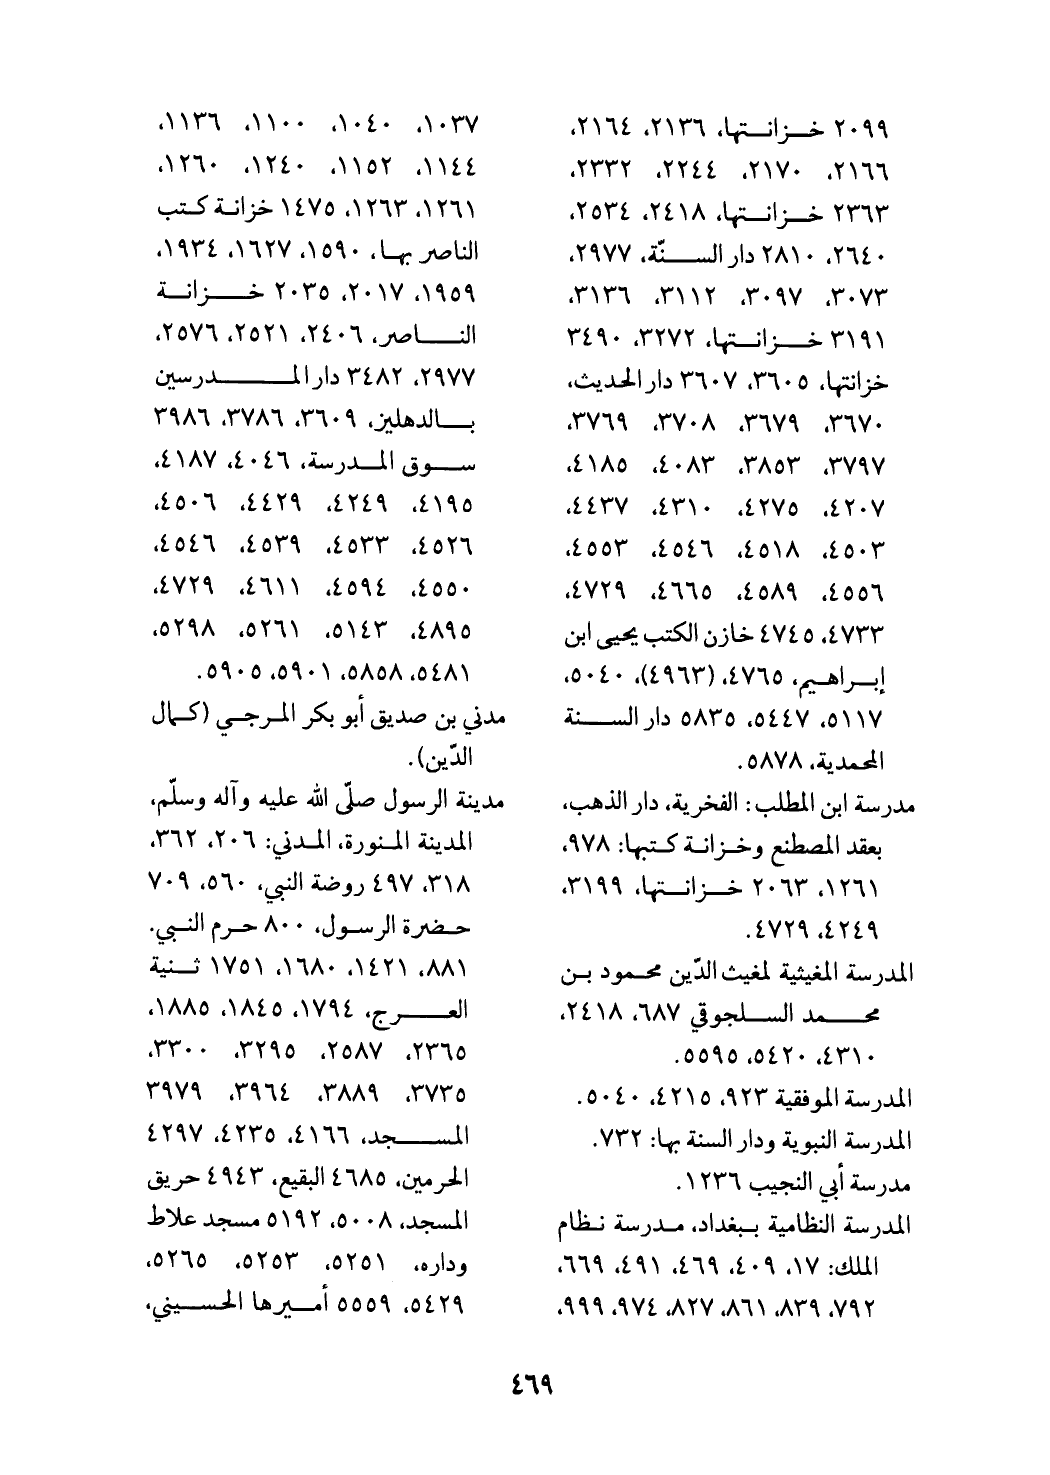 ٢٠٩٩ خـــزانـــتها، ٢١٣٦، ٢١٦٤،
٢١٦٦، ٢١٧٠، ٢٢٤٤، ٢٣٣٢،
٢٣٦٣ خـــزانـــتها، ٢٤١٨، ٢٥٣٤،
٢٦٤٠، ٢٨١٠ دار الســـنّة، ٢٩٧٧،
٣٠٧٣، ٣٠٩٧، ٣١١٢، ٣١٣٦،
٣١٩١ خـــزانـــتها، ٣٢٧٢، ٣٤٩٠
خزانتها، ٣٦٠٥، ٣٦٠٧ دار الحديث،
٣٦٧٠، ٣٦٧٩، ٣٧٠٨، ٣٧٦٩،
٣٧٩٧، ٣٨٥٣، ٤٠٨٣، ٤١٨٥،
٤٢٠٧، ٤٢٧٥، ٤٣١٠، ٤٤٣٧،
٤٥٠٣، ٤٥١٨، ٤٥٤٦، ٤٥٥٣،
٤٥٥٦، ٤٥٨٩، ٤٦٦٥، ٤٧٢٩،
٤٧٣٣، ٤٧٤٥ خازن الكتب يحيى ابن
إبـــراهـــيم، ٤٧٦٥، (٤٩٦٣)، ٥٠٤٠،
٥١١٧، ٥٤٤٧، ٥٨٣٥ دار الســـنة
المحمدية، ٥٨٧٨.
مدرسة ابن المطلب: الفخرية، دار الذهب،
بعقد المصطنع وخـزانـة كـتبها: ٩٧٨،
١٢٦١، ٢٠٦٣ خـــزانـــتها، ٣١٩٩،
٤٢٤٩، ٤٧٢٩.
المدرسة المغيثية لمغيث الدّين محـمود بـن
محـــمد الســـلجوقي ٦٨٧، ٢٤١٨،
٤٣١٠، ٥٤٢٠، ٥٥٩٥.
المدرسة الموفقية ٩٢٣، ٤٢١٥، ٥٠٤٠.
المدرسة النبوية ودار السنة بها: ٧٣٢.
مدرسة أبي النجيب ١٢٣٦.
المدرسة النظامية بـبغداد، مـدرسة نـظام
الملك: ١٧، ٤٠٩، ٤٦٩، ٤٩١، ٦٦٩،
٧٩٢، ٨٣٩، ٨٦١، ٨٢٧، ٩٧٤، ٩٩٩،
١٠٣٧، ١٠٤٠، ١١٠٠، ١١٣٦،
١١٤٤، ١١٥٢، ١٢٤٠، ١٢٦٠،
١٢٦١، ١٢٦٣، ١٤٧٥ خزانـة كـتب
الناصر بهـا، ١٥٩٠، ١٦٢٧، ١٩٣٤،
١٩٥٩، ٢٠١٧، ٢٠٣٥ خـــزانـــة
النـــاصر، ٢٤٠٦، ٢٥٢١، ٢٥٧٦،
٢٩٧٧، ٣٤٨٢ دار المـــدرسين
بـــالدهليز، ٣٦٠٩، ٣٧٨٦، ٣٩٨٦
ســـوق المـــدرسة، ٤٠٤٦، ٤١٨٧،
٤١٩٥، ٤٢٤٩، ٤٤٢٩، ٤٥٠٦،
٤٥٢٦، ٤٥٣٣، ٤٥٣٩، ٤٥٤٦،
٤٥٥٠، ٤٥٩٤، ٤٦١١، ٤٧٢٩،
٤٨٩٥، ٥١٤٣، ٥٢٦١، ٥٢٩٨،
٥٤٨١، ٥٨٥٨، ٥٩٠١، ٥٩٠٥.
مدني بن صديق أبو بكر المـرجـي (كـمال
الدّين).
مدينة الرسول صلّى الله عليه وآله وسلّم،
المدينة المـنورة، المـدني: ٢٠٦، ٣٦٢،
٣١٨، ٤٩٧ روضة النبي، ٥٦٠، ٧٠٩
حـضرة الرسول، ٨٠٠ حـرم النبي.
٨٨١، ١٤٢١، ١٦٨٠، ١٧٥١ ثـــنية
العـــرج، ١٧٩٤، ١٨٤٥، ١٨٨٥،
٢٣٦٥، ٢٥٨٧، ٣٢٩٥، ٣٣٠٠،
٣٧٣٥، ٣٨٨٩، ٣٩٦٤، ٣٩٧٩
المســـجد، ٤١٦٦، ٤٢٣٥، ٤٢٩٧
الحرمين، ٤٦٨٥ البقيع، ٤٩٤٣ حريق
المسجد، ٥٠٠٨، ٥١٩٢ مسجد علاط
وداره، ٥٢٥١، ٥٢٥٣، ٥٢٦٥،
٥٤٢٩، ٥٥٥٩ أمـــيرها الحســـيني،
٤٦٩